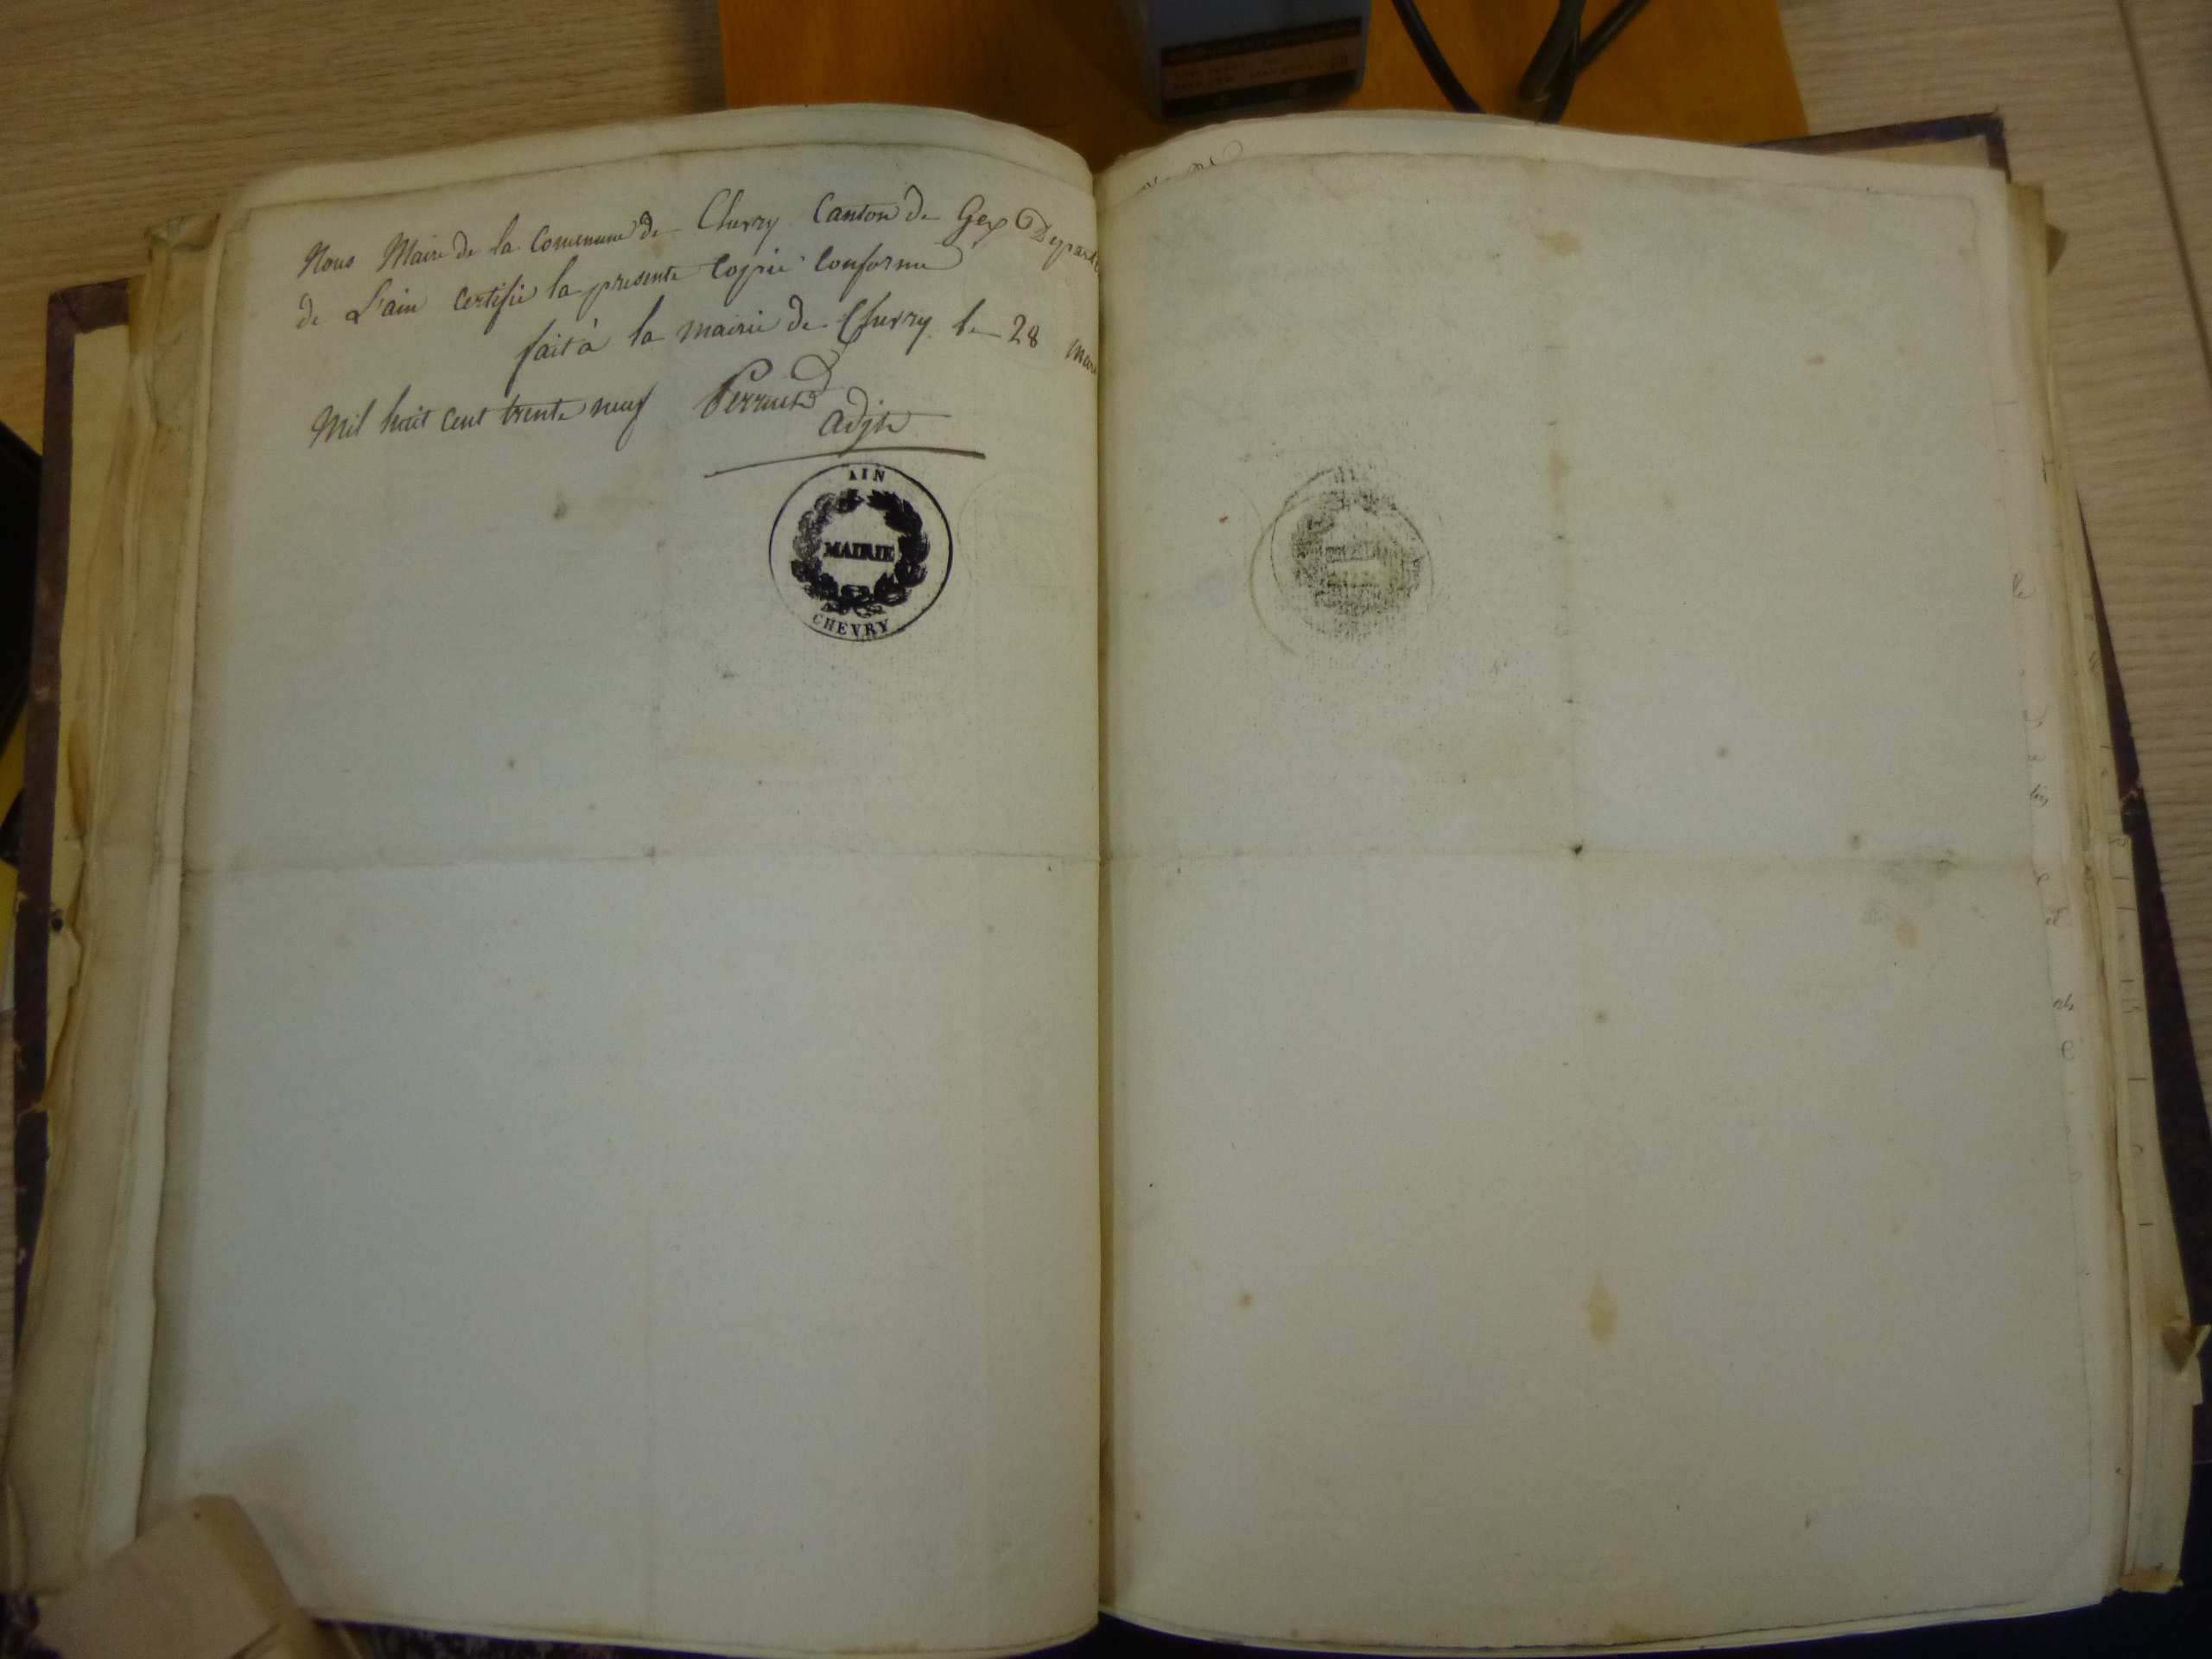 Nous Maire de la Commune de Chevry Canton de Gex Depart
de L'ain Certifie la presente Copie Conforme
fait à la mairie de Chevry le 28 Mars
Mil huit cent trente neuf Perrud
adjt
AIN
MAIRIE
CHEVRY